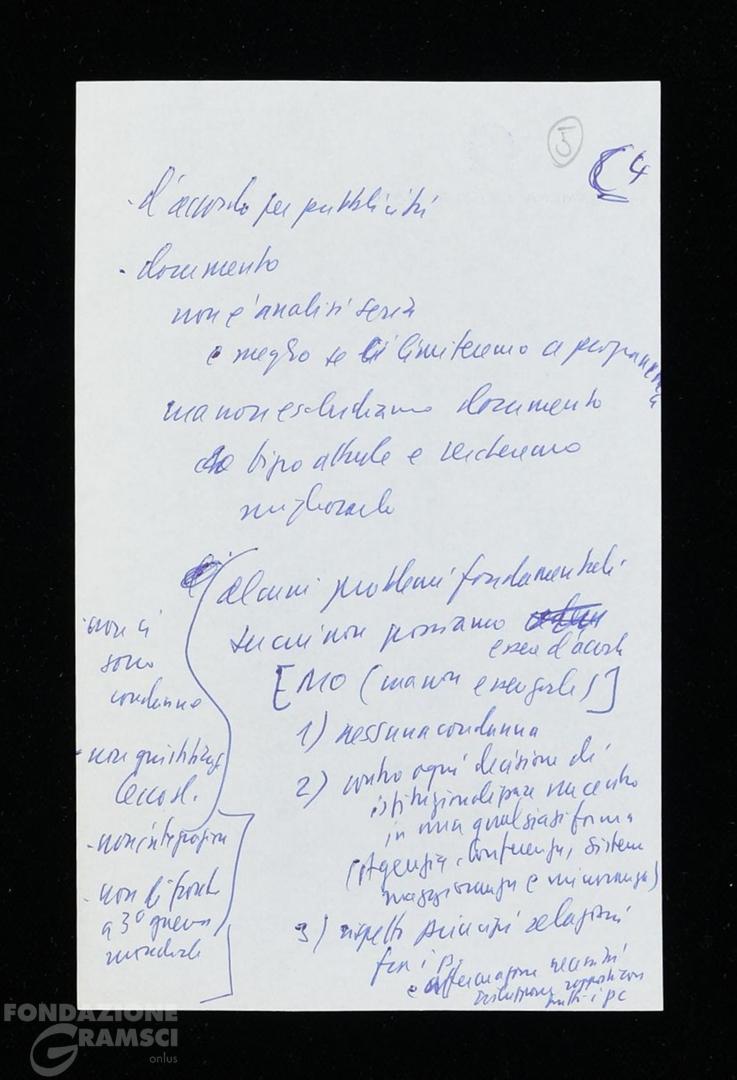 5
4
- d'accordo per pubblicità
- documento
non è analisi seria
è meglio se ci limiteremo a propaganda
ma non escludiamo documento
tipo attuale e cercheremo
migliorarlo
alcuni problemi fondamentali
su cui non possiamo
essere d'accordo
[MO (ma non esagerare)]
1) nessuna condanna
2) contro ogni decisione di
istituzionalizzare un centro
in una qualsiasi forma
(Agenzia, Conferenza, sistema
maggioranza e minoranza)
3) rispetto principi relazioni
fra i p.
e affermazione necessità
rapporti con
tutti i pc
- non ci
sono
condanne
- non
Cecosl.
- non integrazione
- non di fronte
a 3° guerra
mondiale
FONDAZIONE
GRAMSCI
onlus